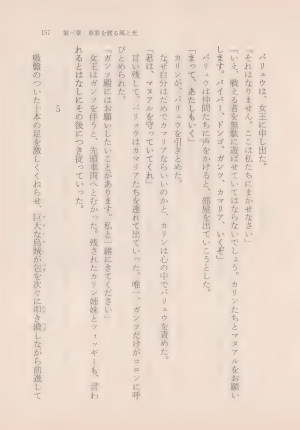 157　第一章　草原を渡る風と光
バリュウは、女王に申し出た。
「それはなりません。ここは私たちにまかせなさい」
「いえ、戦える者を無駄に遊ばせていてはならないでしょう。カリンたちとマヌアルをお願い
します。バイパー、ドンゴ、ガンツ、カマリア、いくぞ」
バリュウは仲間たちに声をかけると、部屋を出ていこうとした。
「まって、あたしもいく」
カリンが、バリュウを引きとめた。
なぜ自分はだめでカマリアならいいのかと、カリンは心の中でバリュウを責めた。
「君は、マヌアルを守っていてくれ」
言い残して、バリュウはカマリアたちを連れて出ていった。唯一、ガンツだけがコロンに呼
びとめられた。
「ガンツ殿にはお願いしたいことがあります。私と一緒にきてください」
女王はガンツを伴うと、先頭車両へとむかった。残されたカリン姉妹とツィッギーも、言わ
れるとはなしにその後につき従っていった。
5
吸盤のついた十本の足を激しくくねらせ、巨大な烏賊が包を次々に叩き潰しながら前進して